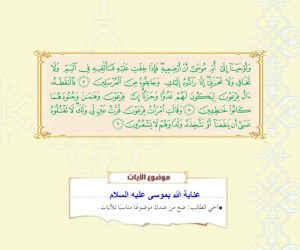 وَأَوْحَيْنَا إِلَىٰ أُمِّ مُوسَىٰ أَنْ أَرْضِعِيهِ فَإِذَا خِفْتِ عَلَيْهِ فَأَلْقِيهِ فِي الْيَمِّ وَلَا
تَخَافِي وَلَا تَحْزَنِي إِنَّا رَادُّوهُ إِلَيْكِ وَجَاعِلُوهُ مِنَ الْمُرْسَلِينَ ٧ فَالْتَقَطَهُ
آلُ فِرْعَوْنَ لِيَكُونَ لَهُمْ عَدُوًّا وَحَزَنًا إِنَّ فِرْعَوْنَ وَهَامَانَ وَجُنُودَهُمَا
كَانُوا خَاطِئِينَ ٨ وَقَالَتِ امْرَأَتُ فِرْعَوْنَ قُرَّتُ عَيْنٍ لِي وَلَكَ لَا تَقْتُلُوهُ
عَسَىٰ أَنْ يَنْفَعَنَا أَوْ نَتَّخِذَهُ وَلَدًا وَهُمْ لَا يَشْعُرُونَ ٩
موضوع الآيات
عناية الله بموسى عليه السلام
● أخي الطالب: ضع من عندك موضوعًا مناسبًا للآيات.